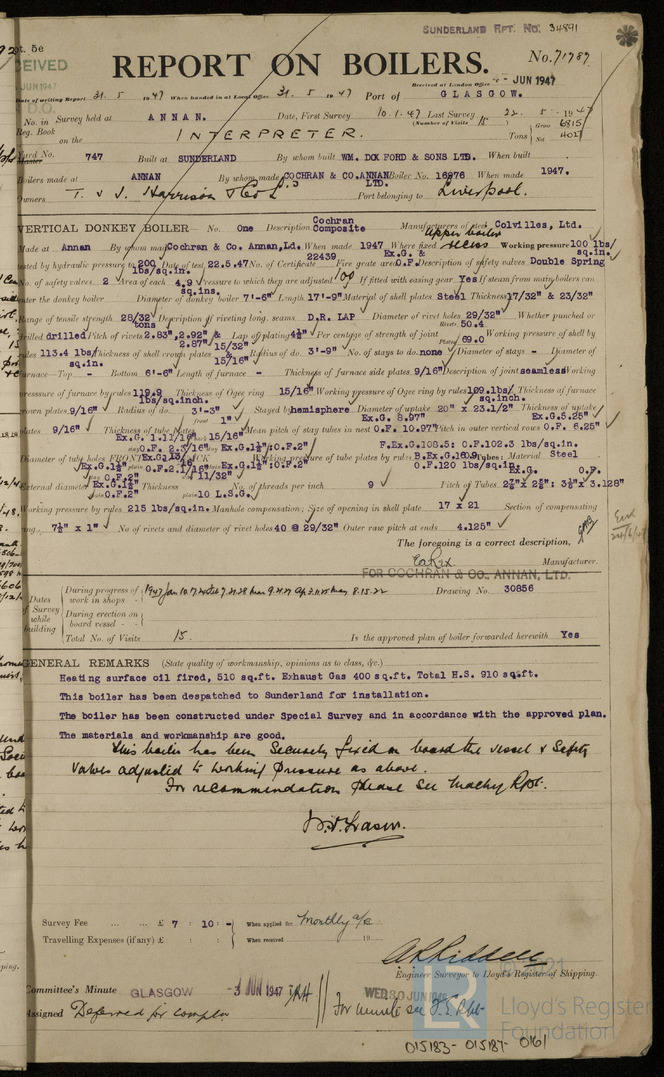 SUNDERLAND RPT. NO. 34891
pt. 5e
REPORT ON BOILERS.
No. 71787
CEIVED
JUN 1947
D.O.
Received at London Office 4 - JUN 1947
Date of writing Report 31. 5 1947 When handed in at Local Office 31. 5 1947 Port of GLASGOW.
No. in Survey held at ANNAN. Date, First Survey 10.1.47 Last Survey 22. 5 - 1947
Reg. Book (Number of Visits 15
on the INTERPRETER. Tons Gross 6815
Net 4027
Yard No. 747 Built at SUNDERLAND By whom built WM. DOXFORD & SONS LTD. When built
Boilers made at ANNAN By whom made COCHRAN & CO. ANNAN LTD. Boiler No. 16976 When made 1947.
Owners T. & J. Harrison & Co Ld. Port belonging to Liverpool.
VERTICAL DONKEY BOILER No. One Description Cochran Composite Manufacturers of steel Colvilles, Ltd.
Made at Annan By whom made Cochran & Co. Annan, Ld. When made 1947 Where fixed Upper boiler recess Working pressure 100 lbs/sq.in.
tested by hydraulic pressure to 200 lbs/sq.in. Date of test 22.5.47 No. of Certificate 22439 Fire grate area Ex.G. & O.F. Description of safety valves Double Spring
No. of safety valves 2 Area of each 4.9 sq.ins. Pressure to which they are adjusted 100 If fitted with easing gear Yes If steam from main boilers can
enter the donkey boiler Diameter of donkey boiler 7'-6" Length 17'-9" Material of shell plates Steel Thickness 17/32" & 23/32"
Range of tensile strength 28/32 tons Description of riveting long. seams D.R. LAP Diameter of rivet holes 29/32" Whether punched or
drilled drilled Pitch of rivets 2.83", 2.92" & 2.87" Lap of plating 4¼" Per centage of strength of joint Rivets 50.4 Plates 69.0 Working pressure of shell by
rules 113.4 lbs/sq.in. Thickness of shell crown plates 15/32" & 15/16" Radius of do. 3'-9" No. of stays to do. none Diameter of stays - Diameter of
furnace—Top - Bottom 6'-6" Length of furnace - Thickness of furnace side plates 9/16" Description of joint seamless Working
pressure of furnace by rules 119.9 lbs/sq.inch. Thickness of Ogee ring 15/16" Working pressure of Ogee ring by rules 109 lbs/sq.inch. Thickness of furnace
crown plates 9/16" Radius of do. 3'-3" Stayed by hemisphere Diameter of uptake 20" x 23.1/2" Thickness of uptake
plates 9/16" Thickness of tube plates front 1" back 15/16" Mean pitch of stay tubes in nest Ex.G. 8.97" O.F. 10.97" Pitch in outer vertical rows Ex.G. 5.25" O.F. 6.25"
Diameter of tube holes FRONT BACK Working pressure of tube plates by rules F.Ex.G.108.5: O.F.102.3 lbs/sq.in. O.F.120 lbs/sq.in. Tubes: Material Steel
External diameter Thickness No. of threads per inch 9 Pitch of Tubes Ex.G. 2⅞" x 2⅝": O.F. 3¼" x 3.128"
plain 10 L.S.G.
Working pressure by rules 215 lbs/sq.in. Manhole compensation; Size of opening in shell plate 17 x 21 Section of compensating
ring 7½" x 1" No. of rivets and diameter of rivet holes 40 @ 29/32" Outer row pitch at ends 4.125"
The foregoing is a correct description,
Manufacturer.
FOR COCHRAN & CO., ANNAN, LTD.
Dates of Survey while building
During progress of work in shops - -
During erection on board vessel - -
Total No. of Visits 15.
Drawing No. 30856
Is the approved plan of boiler forwarded herewith Yes
GENERAL REMARKS (State quality of workmanship, opinions as to class, &c.)
Heating surface oil fired, 510 sq.ft. Exhaust Gas 400 sq.ft. Total H.S. 910 sq.ft.
This boiler has been despatched to Sunderland for installation.
The boiler has been constructed under Special Survey and in accordance with the approved plan.
The materials and workmanship are good.
This boiler has been securely fixed on board the vessel & Safety
valves adjusted to working pressure as above.
For recommendation please see Machy Rpt.
Survey Fee ... ... £ 7 : 10 : - When applied for Monthly a/c
Travelling Expenses (if any) £ : : When received 19
A.R. Riddell
Engineer Surveyor to Lloyd's Register of Shipping.
Committee's Minute GLASGOW 3 JUN 1947
WED 30 JUN 1948
Assigned Deferred for compln
For minute see F.E. Rpt.
LR
Lloyd's Register
Foundation
015183-015187-0161